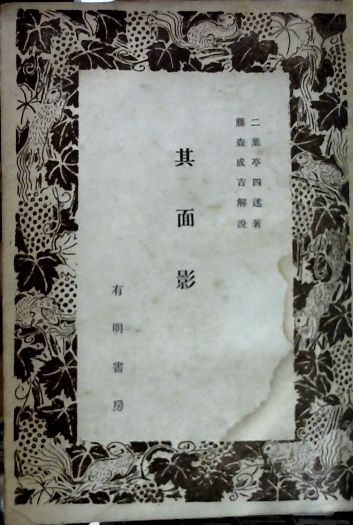 二葉亭四迷著
藤森成吉解說
其面影
有明書房